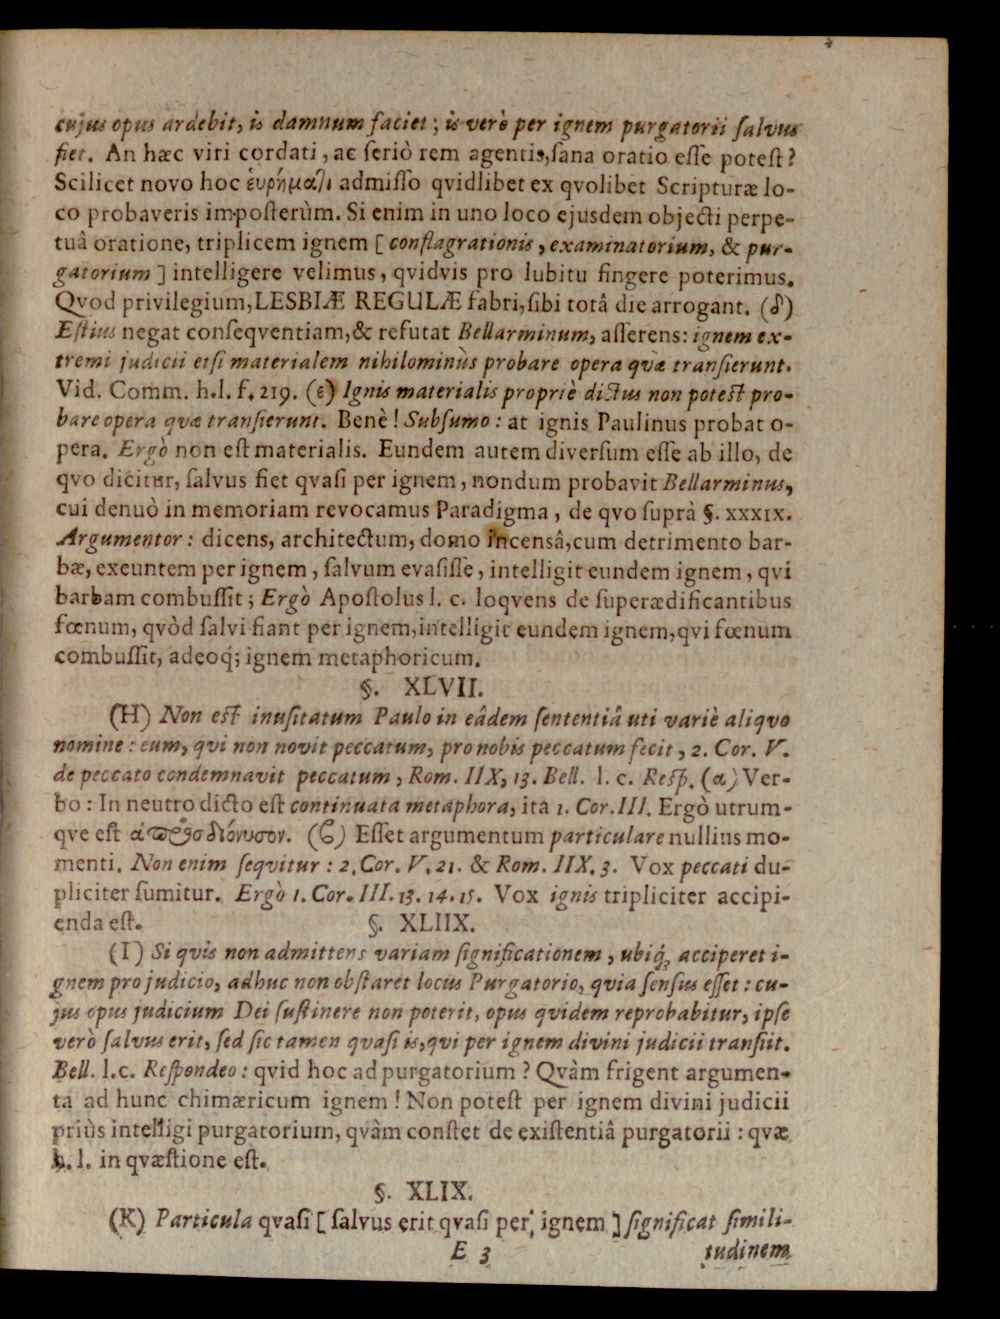 cujus opus ardebit, is damnum faciet; is verò per ignem purgatorii ſalvus
fiet. An hæc viri cordati, ac ſeriò rem agentis, ſana oratio eſſe poteſt?
Scilicet novo hoc ἑυρήματι admiſſo qvidlibet ex qvolibet Scripturæ lo-
co probaveris impoſterùm. Si enim in uno loco ejusdem objecti perpe-
tuâ oratione, triplicem ignem [conflagrationis, examinatorium, & pur-
gatorium] intelligere velimus, qvidvis pro lubitu fingere poterimus.
Qvod privilegium, LESBIÆ REGULÆ fabri, ſibi totâ die arrogant. (δ)
Eſtius negat conſeqventiam, & refutat Bellarminum, aſſerens: ignem ex-
tremi judicii etſi materialem nihilominùs probare opera qvæ tranſierunt.
Vid. Comm. h.l. f. 219. (ε) Ignis materialis propriè dictus non poteſt pro-
bare opera qvæ tranſierunt. Benè! Subſumo: at ignis Paulinus probat o-
pera. Ergò non eſt materialis. Eundem autem diverſum eſſe ab illo, de
qvo dicitur, ſalvus fiet qvaſi per ignem, nondum probavit Bellarminus,
cui denuò in memoriam revocamus Paradigma, de qvo ſuprà §. XXXIX.
Argumentor: dicens, architectum, domo incensâ, cum detrimento bar-
bæ, exeuntem per ignem, ſalvum evaſiſſe, intelligit eundem ignem, qvi
barbam combuſſit; Ergò Apoſtolus l. c. loqvens de ſuperædificantibus
fœnum, qvòd ſalvi fiant per ignem, intelligit eundem ignem, qvi fœnum
combuſſit, adeoq́; ignem metaphoricum.
§. XLVII.
(H) Non eſt inuſitatum Paulo in eâdem ſententiâ uti variè aliqvo
nomine: eum, qvi non novit peccatum, pro nobis peccatum fecit, 2. Cor. V.
de peccato condemnavit peccatum, Rom. IIX, 13. Bell. l. c. Reſp. (α) Ver-
bo: In neutro dicto eſt continuata metaphora, ita 1. Cor. III. Ergò utrum-
qve eſt ἀπροσδιόνυσον. (ϐ) Eſſet argumentum particulare nullius mo-
menti. Non enim ſeqvitur: 2. Cor. V. 21. & Rom. IIX. 3. Vox peccati du-
pliciter ſumitur. Ergò 1. Cor. III. 13. 14. 15. Vox ignis tripliciter accipi-
enda eſt.
§. XLIIX.
(I) Si qvis non admittens variam ſignificationem, ubiq́; acciperet i-
gnem pro judicio, adhuc non obſtaret locus Purgatorio, qvia ſenſus eſſet: cu-
jus opus judicium Dei ſuſtinere non poterit, opus qvidem reprobabitur, ipſe
verò ſalvus erit, ſed ſic tamen qvaſi is, qvi per ignem divini judicii tranſiit.
Bell. l.c. Reſpondeo: qvid hoc ad purgatorium? Qvàm frigent argumen-
ta ad hunc chimæricum ignem! Non poteſt per ignem divini judicii
priùs intelligi purgatorium, qvàm conſtet de exiſtentiâ purgatorii: qvæ
h. l. in qvæſtione eſt.
§. XLIX.
(K) Particula qvaſi [ſalvus erit qvaſi per ignem] ſignificat ſimili-
E 3
tudinem